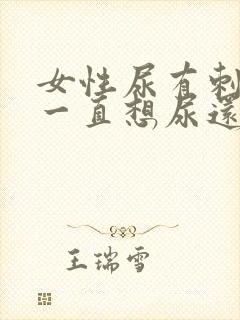 女性尿有刺
一直想尿還
王瑞雪